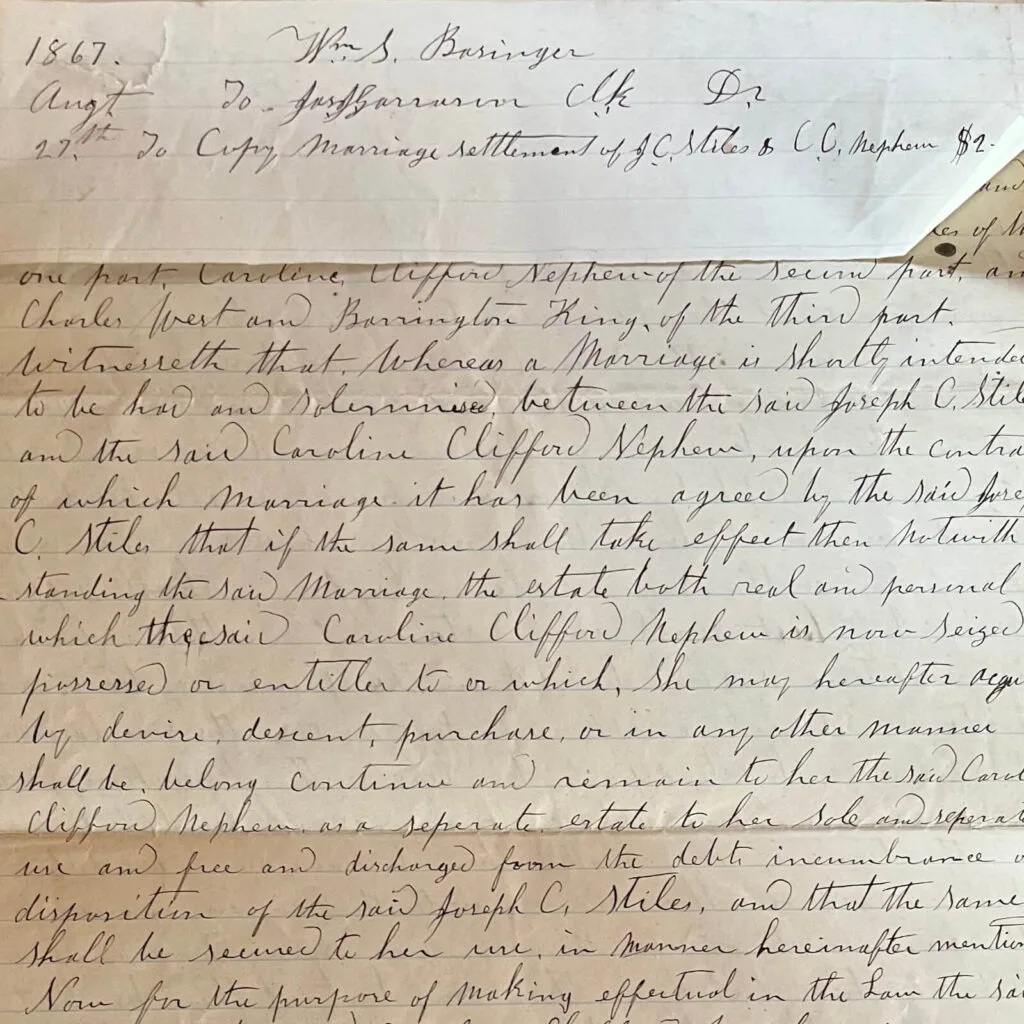 1867. Wm S. Basinger
Augt To Clk Dr
27th To Copy Marriage settlement of J C. Stiles & C. C. Nephew $2.
and
of
one part, Caroline Clifford Nephew of the second part, an
Charles West and Barrington King, of the third part.
Witnesseth that, Whereas a Marriage is shortly intended
to be had and solemnised, between the said Joseph C. Stile
and the said Caroline Clifford Nephew, upon the contra
of which Marriage it has been agreed by the said Jose
C. Stiles that if the same shall take effect then notwith
standing the said Marriage, the estate both real and personal
which the said Caroline Clifford Nephew is now seized
possessed or entitled to or which, She may hereafter acqu
by devise, descent, purchase, or in any other manner
shall be, belong continue and remain to her the said Carol
Clifford Nephew, as a seperate estate to her sole and seperat
use and free and discharged from the debts incumbrance o
disposition of the said Joseph C. Stiles, and that the same
shall be secured to her use, in manner hereinafter mention
Now for the purpose of making effectual in the Law the sai